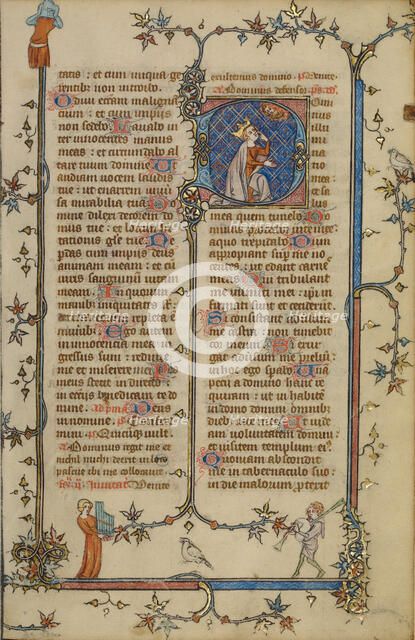 tatis : et cum iniqua ge
rentib; non introibo.
Odivi ecclam malignā
cium : et cum impiis
non sedebo. Lavabo in
ter innocentes manus
meas : et circumdabo al
tare tuum domine. Ut
audiam vocem laudis
tue : et enarrem univer
sa mirabilia tua. Do
mine dilexi decorem do
mus tue : et locum habi
tationis glie tue. Ne
perdas cum impiis deus
animam meam : et cum
viris sanguinum vitam
meam. In quorum
manib; iniquitates sunt :
dextera eorum repleta e
munerib;. Ego autem in
innocentia mea in
gressus sum : redime
me et miserere mei. Pes
meus stetit in directo :
in ecclus benedicam te do
mine. Deus
in nomine. Quicuq; vult.
Dominus regit me et
nichil michi deerit in loco
pascue ibi me collocavit.
Invitat. Venite
exultemus domino. Venite.
Dominus defensor
Dominus
illu
mi
na
tio
mea : quem timebo. Do
minus protector vite mee :
a quo trepidabo. Dum
appropiant sup me no
centes : ut edant carnes
meas. Qui tribulant
me inimici mei : ipi in
firmati sunt et ceciderūt.
Si consistant adversū
me castra : non timebit
cor meum. Si exur
gat adversū me preliū :
in hoc ego sperabo. Unā
petii a domino hanc re
quiram : ut in habitē
in domo domini omnib;
dieb; vite mee. Ut vide
am voluntatem domini :
et visitem templum ei.
Quoniam abscondit
me in tabernaculo suo :
in die malorum ptexit
Heritage
Images